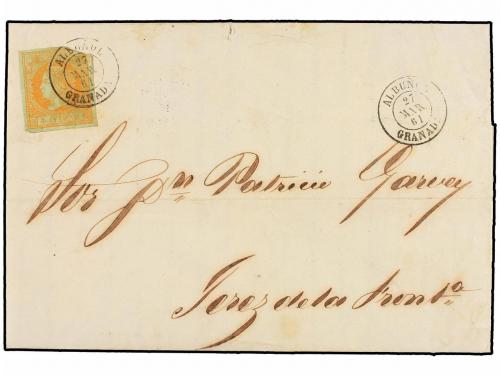 ALBUÑOL
27
MAR
61
GRANADA
ALBUÑOL
27
MAR
61
GRANADA
Sor Dn Patricio Garvey
Jerez de la Fronta